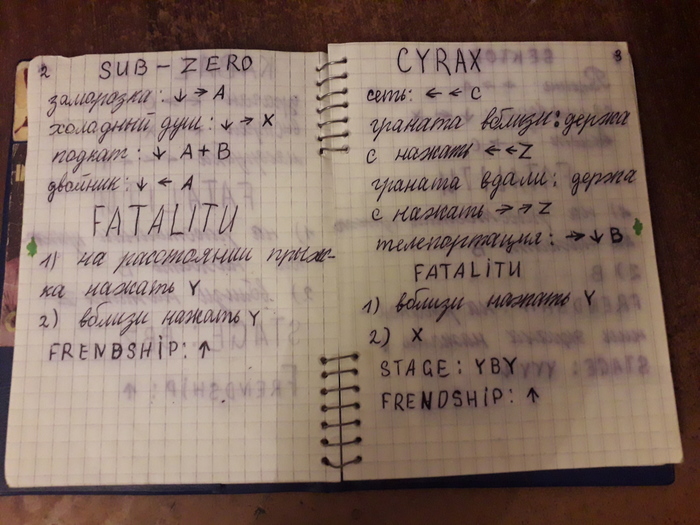 2
SUB-ZERO
заморозка: ↓ → A
холадный душ: ↓ → X
подкат: ↓ A+B
двойник: ↓ ← A
FATALITU
1) на расстоянии прыж-
ка нажать Y
2) вблизи нажать Y
FRENDSHIP: ↑
3
CYRAX
сеть: ← ← C
граната вблизи: держа
с нажать ← ← Z
граната вдали: держа
с нажать → → Z
телепортация: → ↓ B
FATALITU
1) вблизи нажать Y
2) X
STAGE: YBY
FRENDSHIP: ↑